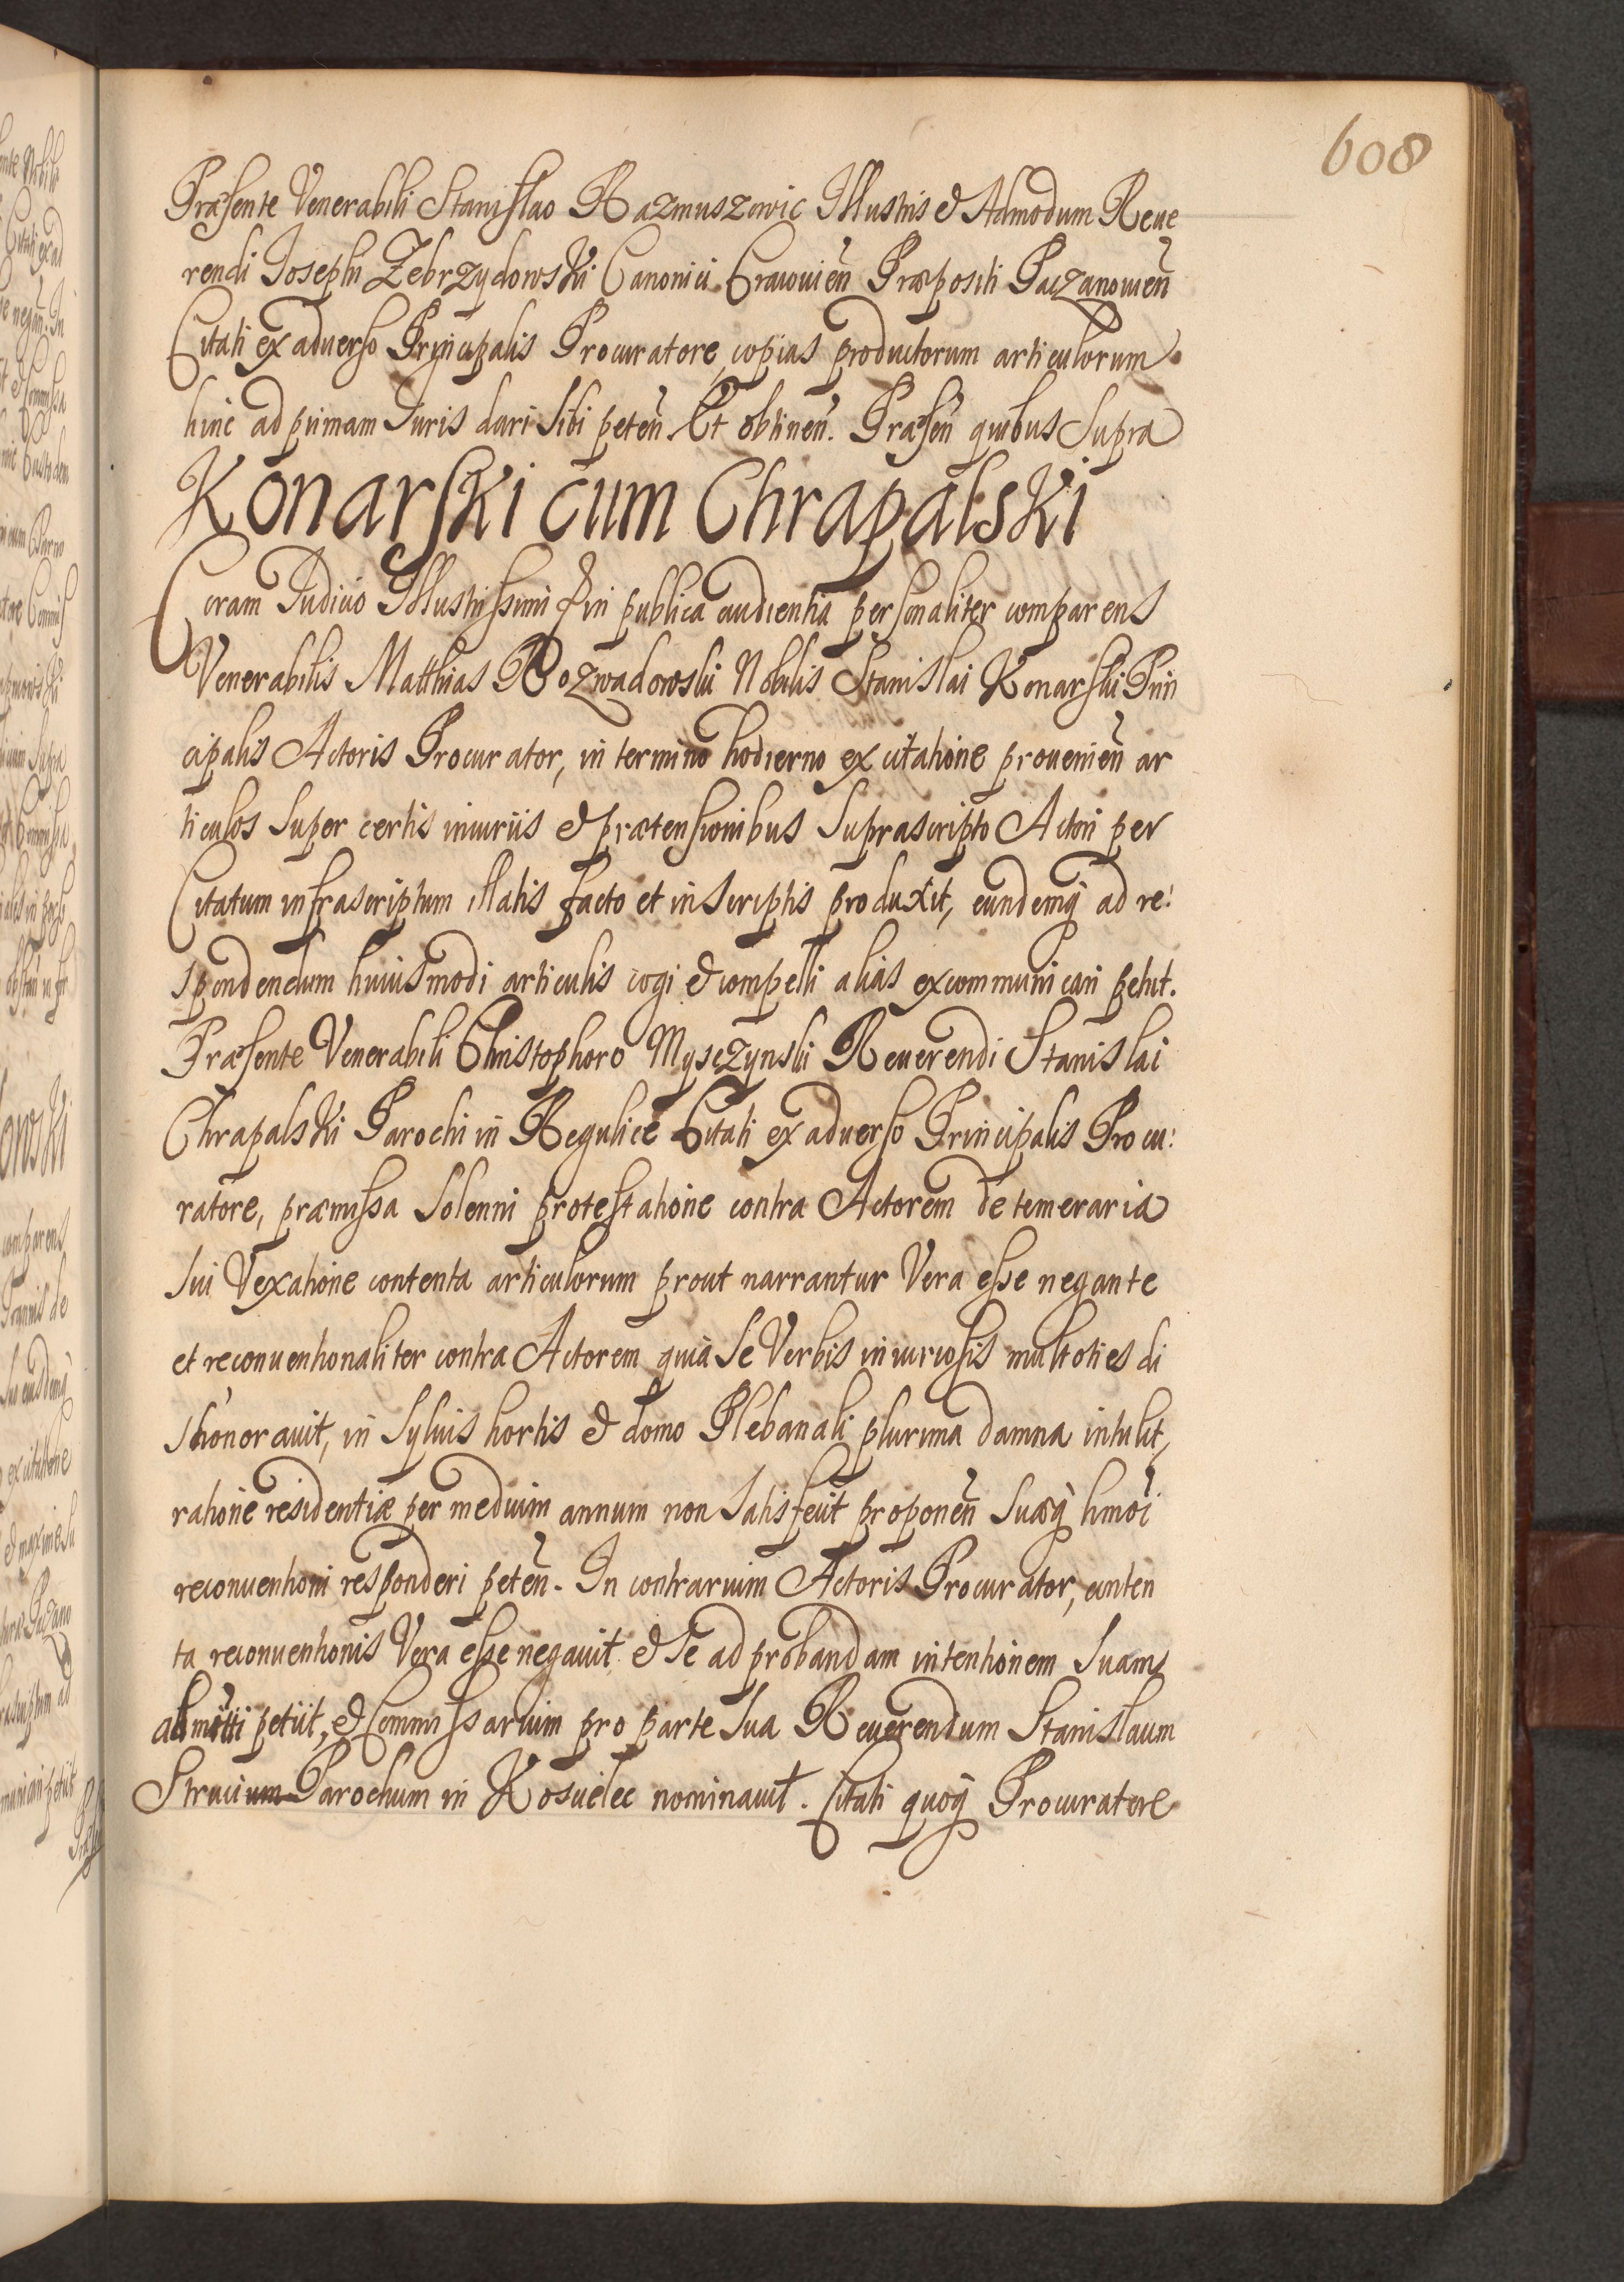 608
Præsente Venerabili Stanislao Razmuszowic Illustris & Admodum Reue
rendi Josephi Zebrzydowski Canonici Cracouień Præpositi Paczanouień
Citati ex aduerso Principalis Procuratore, copias productorum articulorum
hinc ad primam Juris dari sibi peteń Et obtineń. Præseń quibus supra
Konarski cum Chrapalski
Coram Judicio Illustrissimi & in publica audientia personaliter comparens
Venerabilis Matthias Rozwadowski Nobilis Stanislai Konarski Prin
cipalis Actoris Procurator, in termino hodierno ex citatione prouenień ar
ticulos super certis iniuriis & prætensionibus suprascripto Actori per
Citatum infrascriptum illatis facto et in scriptis produxit, eundemq ad re:
spondendum huiusmodi articulis cogi & compelli alias excommunicari petiit.
Præsente Venerabili Christophoro Mysczynski Reuerendi Stanislai
Chrapalski Parochi in Regulice Citati ex aduerso Principalis Procu:
ratore, præmissa solenni protestatione contra Actorem de temeraria
sui Vexatione contenta articulorum prout narrantur Vera esse negante
et reconuentionaliter contra Actorem quia se Verbis iniuriosis multoties di
shonorauit, in syluis hortis & domo Plebanali plurima damna intulit,
ratione residentiæ per medium annum non satisfecit proponeń suæq hmoi
reconuentioni responderi peteń. In contrarium Actoris Procurator, conten
ta reconuentionis Vera esse negauit & se ad probandam intentionem suam
admitti petiit, & Commissarium pro parte sua Reuerendum Stanislaum
Parochum in Koscielec nominauit. Citati quoq Procuratore